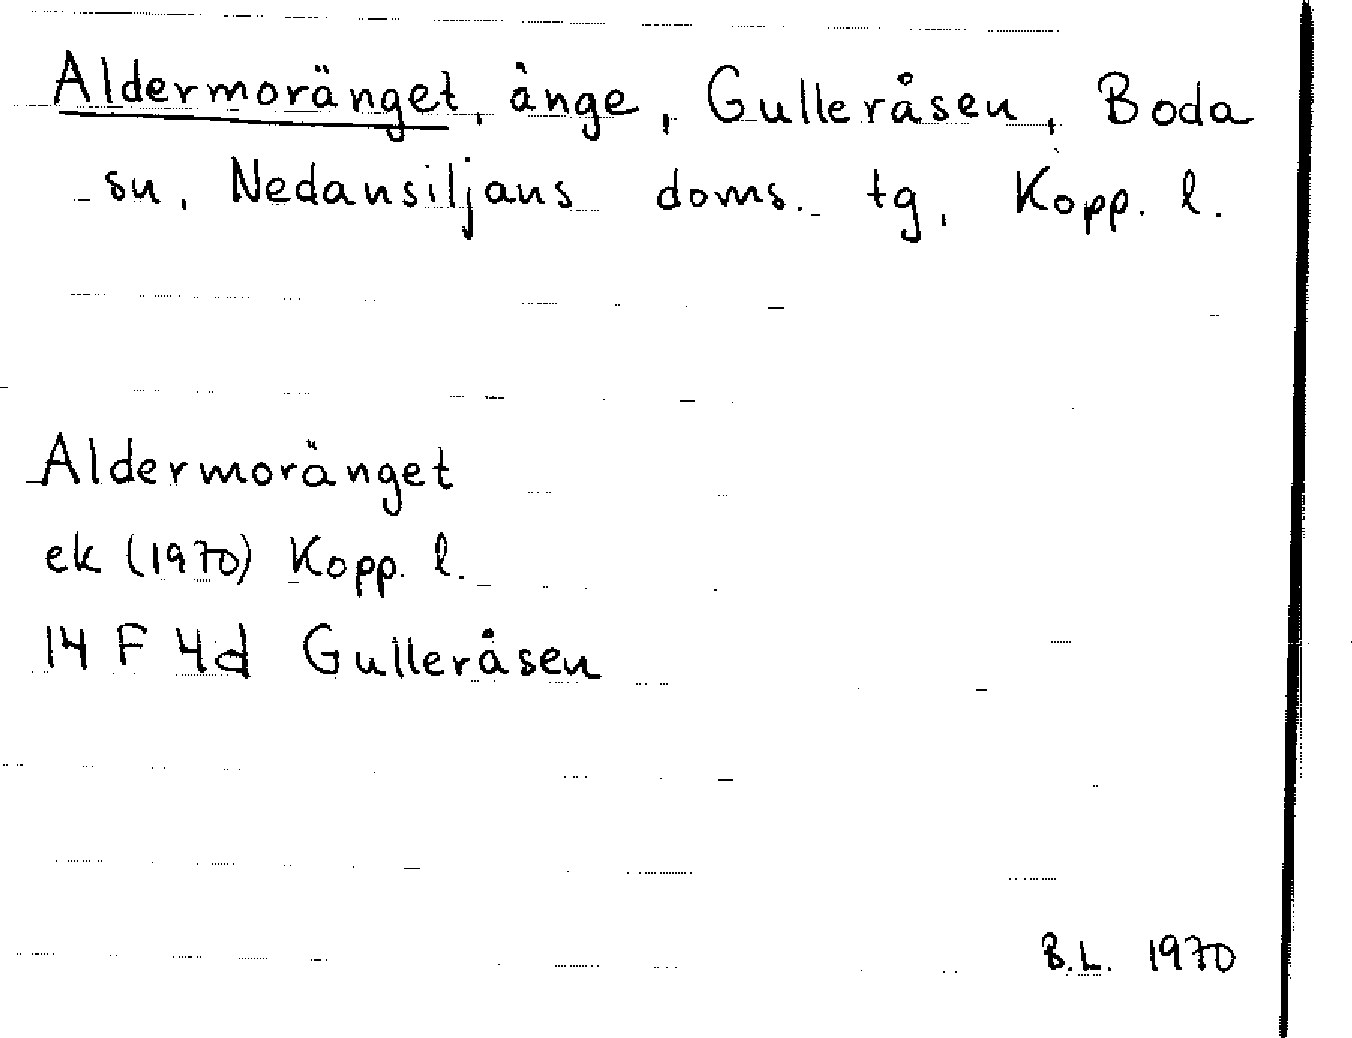 Aldermoränget, änge, Gulleråsen, Boda
sn, Nedansiljans doms. tg, Kopp. l.
Aldermoränget
ek (1970) Kopp. l.
14 F 4d Gulleråsen
B.L. 1970